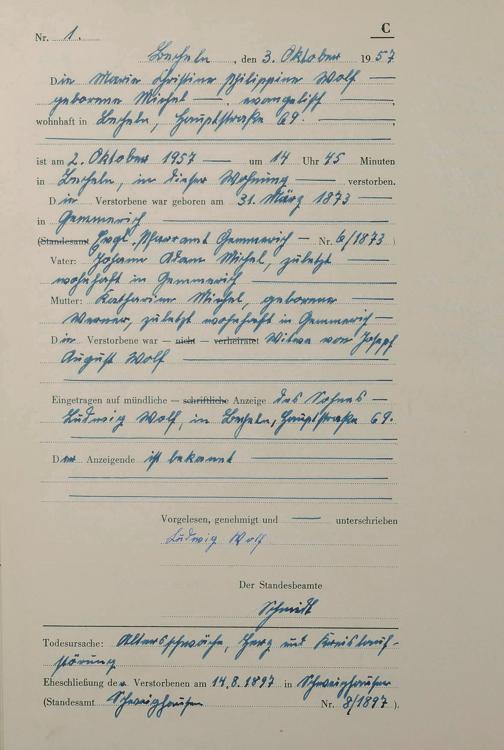 C
Nr. 1.
Becheln, den 3. Oktober 1957
Die Marie Christine Philippine Wolf
geborene Michel, evangelisch
wohnhaft in Becheln, Hauptstraße 69.
ist am 2. Oktober 1957 um 14 Uhr 45 Minuten
in Becheln, in dieser Wohnung verstorben.
Die Verstorbene war geboren am 31. März 1873
in Gemmerich
(Standesamt Evgl. Pfarramt Gemmerich Nr. 6/1873)
Vater: Johann Adam Michel, zuletzt
wohnhaft in Gemmerich
Mutter: Katharine Michel, geborene
Werner, zuletzt wohnhaft in Gemmerich
Die Verstorbene war — nicht — verheiratet Witwe von Joseph
August Wolf
Eingetragen auf mündliche — schriftliche Anzeige des Sohnes
Ludwig Wolf, in Becheln, Hauptstraße 69.
Der Anzeigende ist bekannt
Vorgelesen, genehmigt und — unterschrieben
Ludwig Wolf
Der Standesbeamte
Schmidt
Todesursache: Altersschwäche, Herz und Kreislauf-
störung
Eheschließung der Verstorbenen am 14.8.1897 in Schweighausen
(Standesamt Schweighausen Nr. 8/1897).